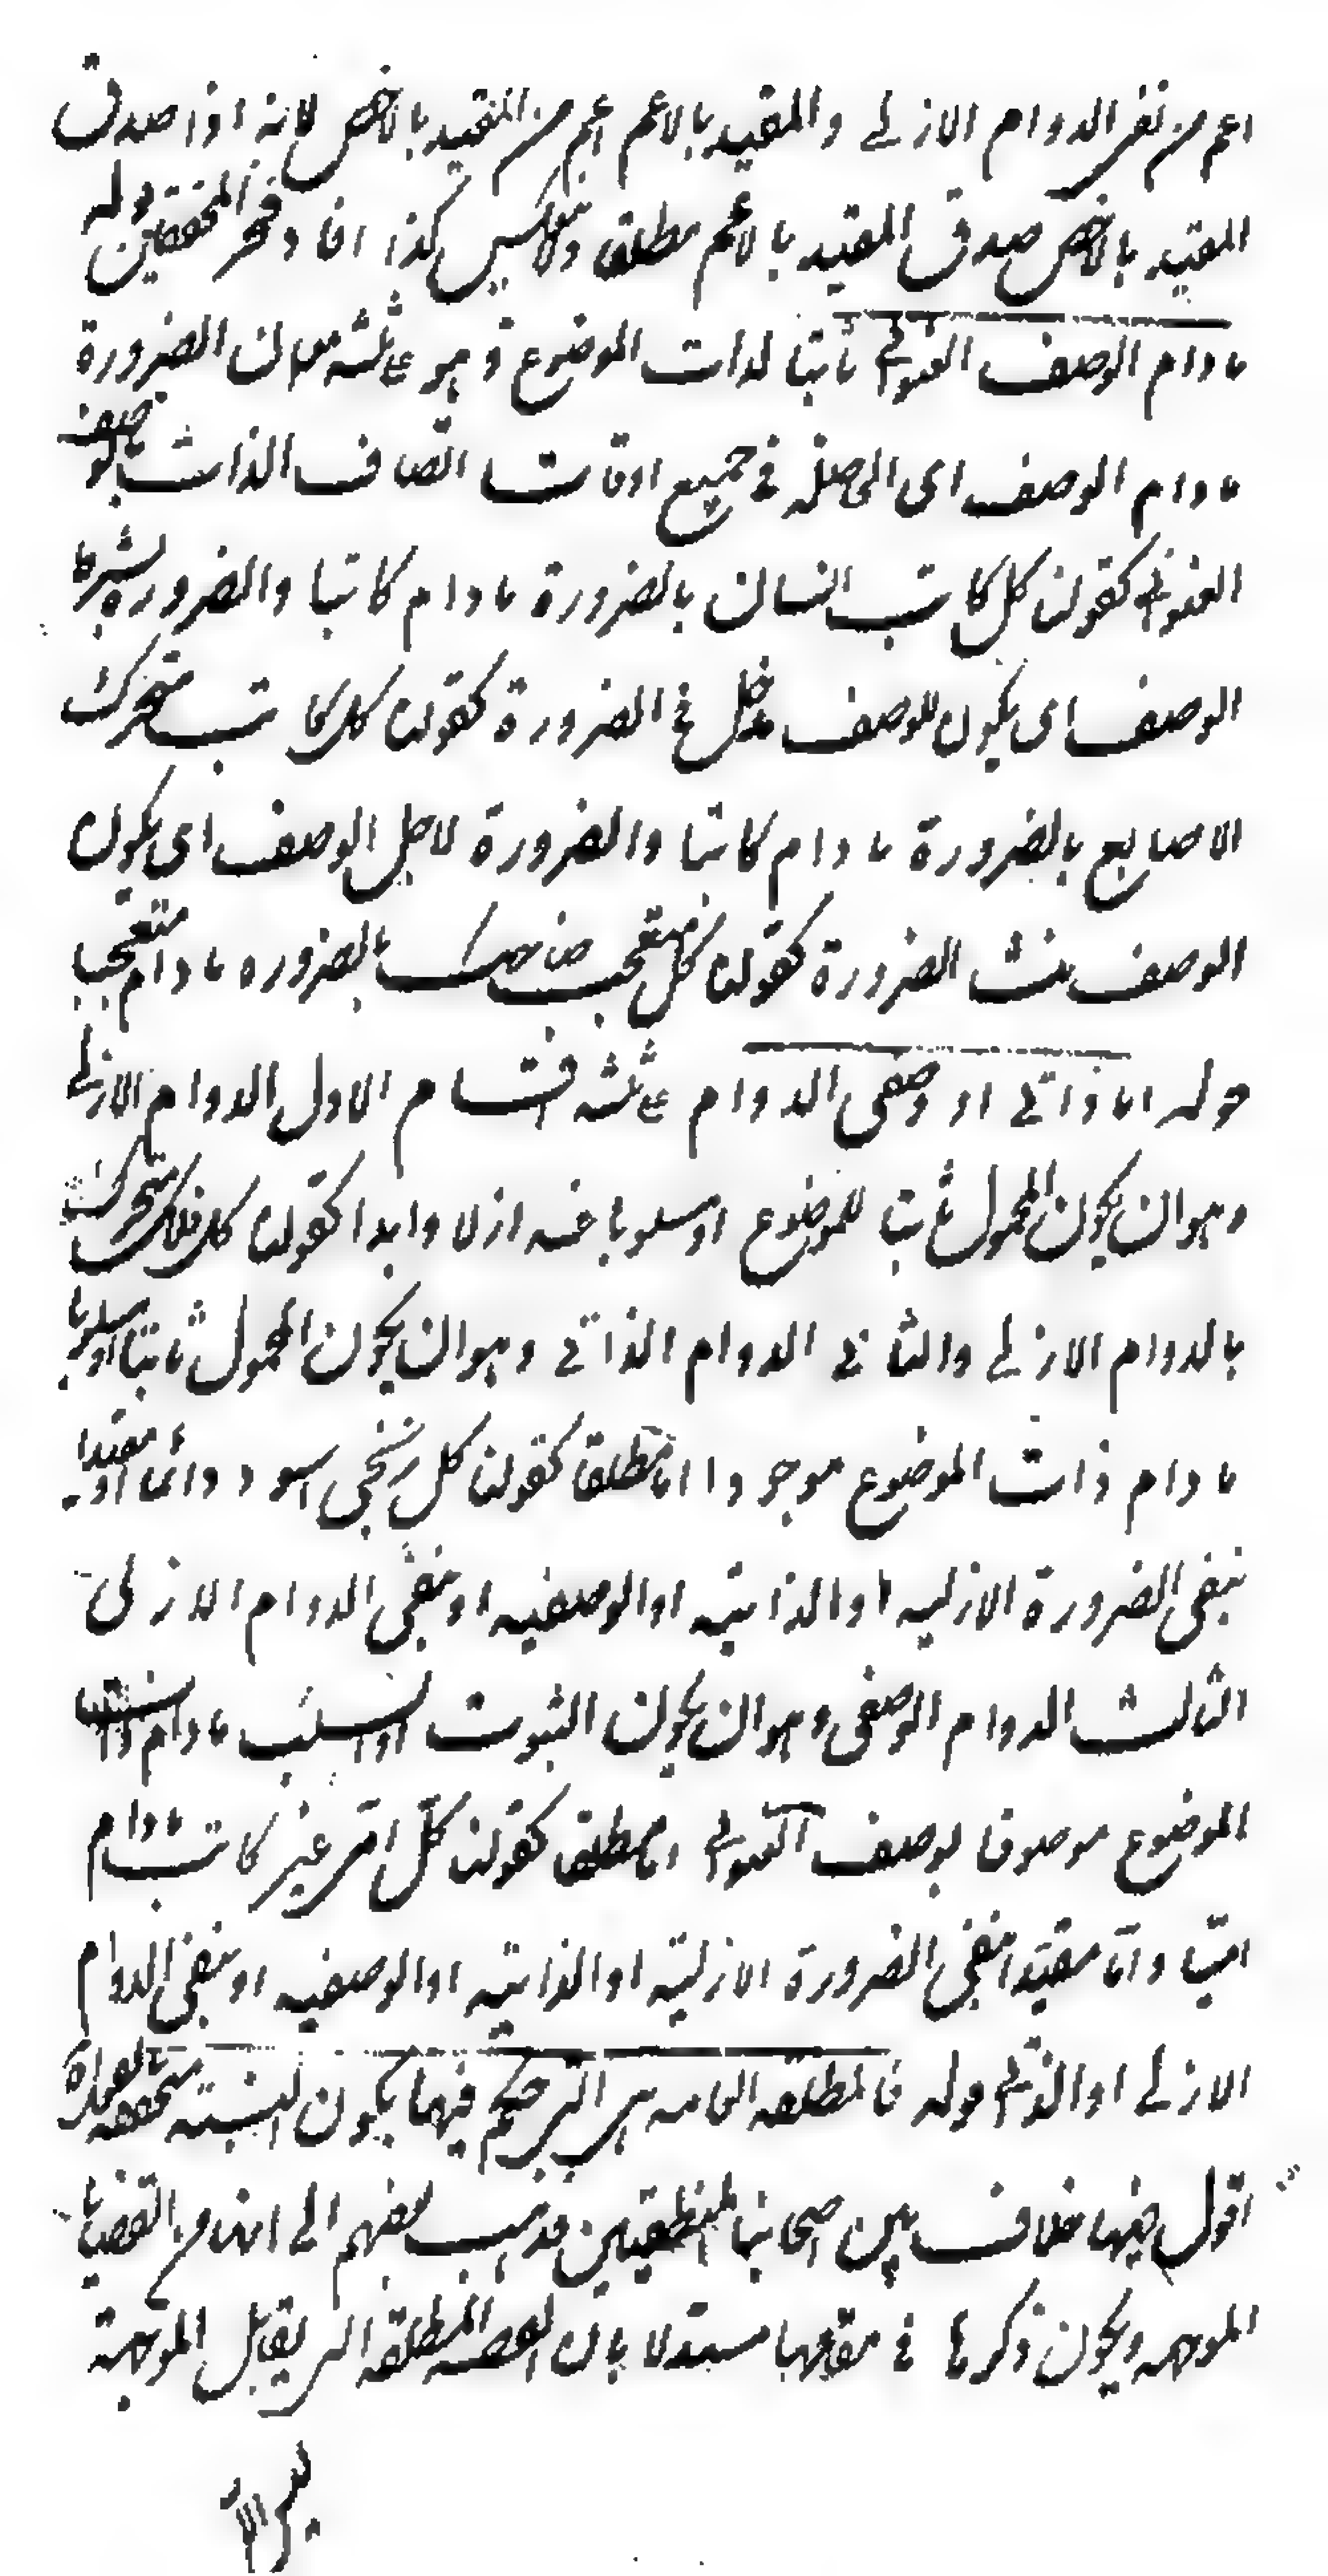 اعم من نفى الدوام الازلى والمقيد بالاعم اعم من المقيد بالاخص لانه اذا صدق
المقيد بالاخص صدق المقيد بالاعم مطلقا ولا عكس كذا افاد فخر المحققين قوله
مادام الوصف العنوانى ثابتا لذات الموضوع وهو ثلثة معان الضرورة
مادام الوصف اى الحاصلة فى جميع اوقات اتصاف الذات بالوصف
العنوانى كقولنا كل كاتب انسان بالضرورة مادام كاتبا والضرورة بشرط
الوصف اى يكون للوصف مدخل فى الضرورة كقولنا كل كاتب متحرك
الاصابع بالضرورة مادام كاتبا والضرورة لاجل الوصف اى يكون
الوصف منشأ الضرورة كقولنا كل متعجب ضاحك بالضروره مادام متعجبا
قوله اما ذاتى او وصفى الدوام ثلثة اقسام الاول الدوام الازلى
وهو ان يكون المحمول ثابتا للموضوع او مسلوبا عنه ازلا وابدا كقولنا كل فلك متحرك
بالدوام الازلى والثانى الدوام الذاتى وهو ان يكون المحمول ثابتا او مسلوبا
مادام ذات الموضوع موجودا اما مطلقا كقولنا كل زنجى اسود دائما او مقيدا
بنفى الضرورة الازليه او الذاتيه او الوصفيه او بنفى الدوام الازلى
الثالث الدوام الوصفى وهو ان يكون الثبوت او السلب مادام ذات
الموضوع موصوفا بوصف العنوانى اما مطلقا كقولنا كل امى غير كاتب مادام
اميا واما مقيدا بنفى الضرورة الازلية او الذاتيه او الوصفيه او بنفى الدوام
الازلى او الذاتى قوله فالمطلقه العامه هى التى حكم فيها بكون النسبة متحققه بالفعل
اقول فيها خلاف بين اصحابنا المنطقيين فذهب بعضهم الى انها من القضايا
الموجهه ويكون ذكرها فى مقابلها مستدلا بان القضيه المطلقه التى يقابل الموجهة